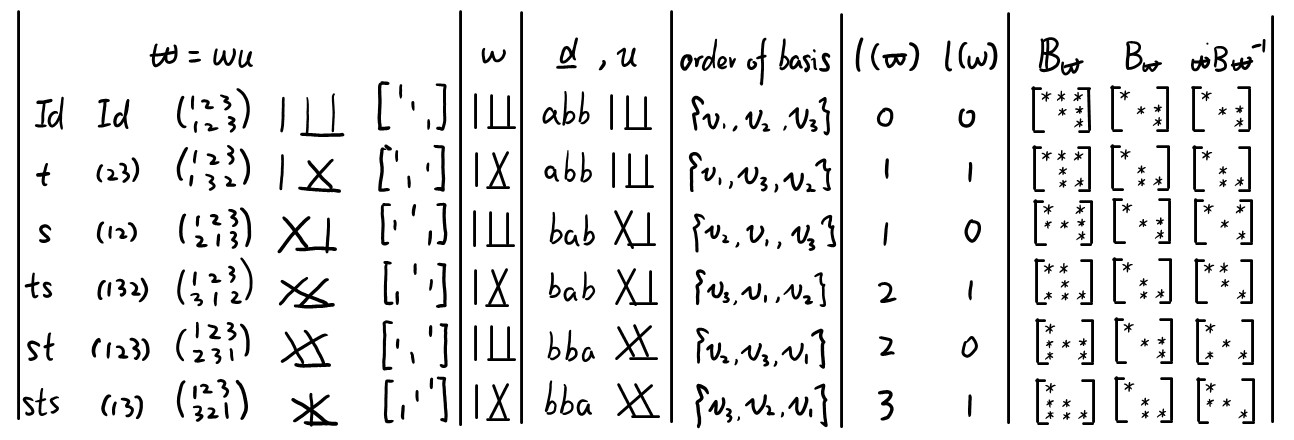 ϖ = wu w d , u order of basis l(ϖ) l(w) 𝔹_ϖ B_ϖ ϖBϖ⁻¹
Id Id (1 2 3 / 1 2 3) abb {v₁, v₂, v₃} 0 0 [* * * / * * / *] [* / * * / *] [* / * * / *]
t (23) (1 2 3 / 1 3 2) abb {v₁, v₃, v₂} 1 1 [* * * / * / * *] [* / * * / *] [* / * / * *]
s (12) (1 2 3 / 2 1 3) bab {v₂, v₁, v₃} 1 0 [* * / * * * / *] [* / * * / *] [* * / * / *]
ts (132) (1 2 3 / 3 1 2) bab {v₃, v₁, v₂} 2 1 [* * / * / * * *] [* / * / * *] [* * / * / *]
st (123) (1 2 3 / 2 3 1) bba {v₂, v₃, v₁} 2 0 [* / * * * / * *] [* / * * / *] [* / * / * *]
sts (13) (1 2 3 / 3 2 1) bba {v₃, v₂, v₁} 3 1 [* / * * / * * *] [* / * / * *] [* / * * / *]